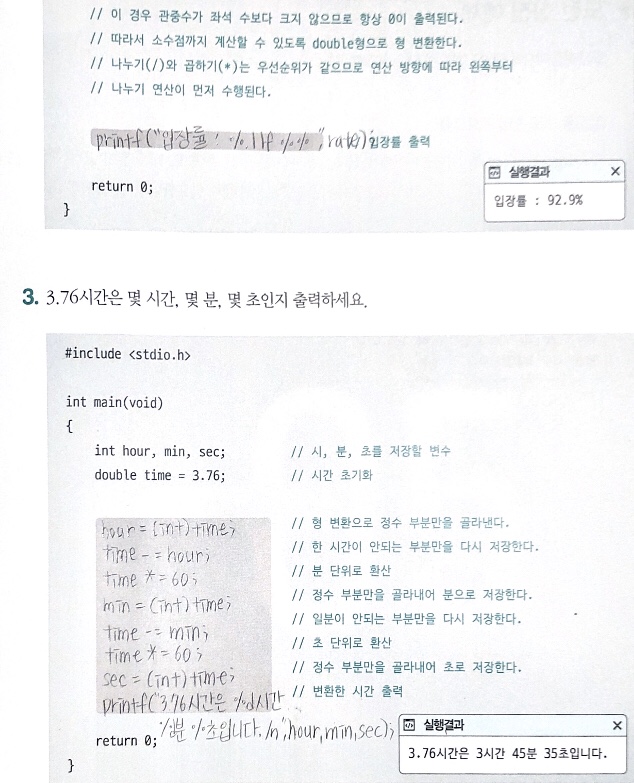 // 이 경우 관중수가 좌석 수보다 크지 않으므로 항상 0이 출력된다.
// 따라서 소수점까지 계산할 수 있도록 double형으로 형 변환한다.
// 나누기(/)와 곱하기(*)는 우선순위가 같으므로 연산 방향에 따라 왼쪽부터
// 나누기 연산이 먼저 수행된다.
printf("입장률 : %.1lf %%", rate); 입장률 출력
return 0;
}
실행결과
입장률 : 92.9%
3. 3.76시간은 몇 시간, 몇 분, 몇 초인지 출력하세요.
#include <stdio.h>
int main(void)
{
int hour, min, sec; // 시, 분, 초를 저장할 변수
double time = 3.76; // 시간 초기화
hour = (int)time; // 형 변환으로 정수 부분만을 골라낸다.
time -= hour; // 한 시간이 안되는 부분만을 다시 저장한다.
time *= 60; // 분 단위로 환산
min = (int)time; // 정수 부분만을 골라내어 분으로 저장한다.
time -= min; // 일분이 안되는 부분만을 다시 저장한다.
time *= 60; // 초 단위로 환산
sec = (int)time; // 정수 부분만을 골라내어 초로 저장한다.
printf("3.76시간은 %d시간 // 변환한 시간 출력
%분 %초입니다./n", hour, min, sec);
return 0;
}
실행결과
3.76시간은 3시간 45분 35초입니다.